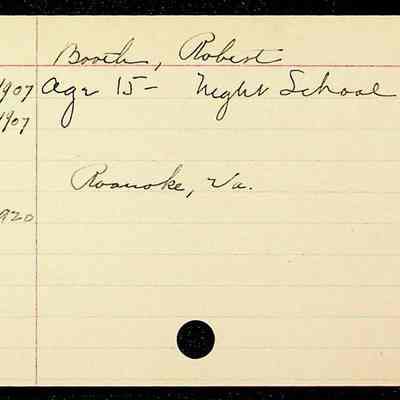 Booth, Robert
1907 Age 15- Night School
1907
Roanoke, Va.
920